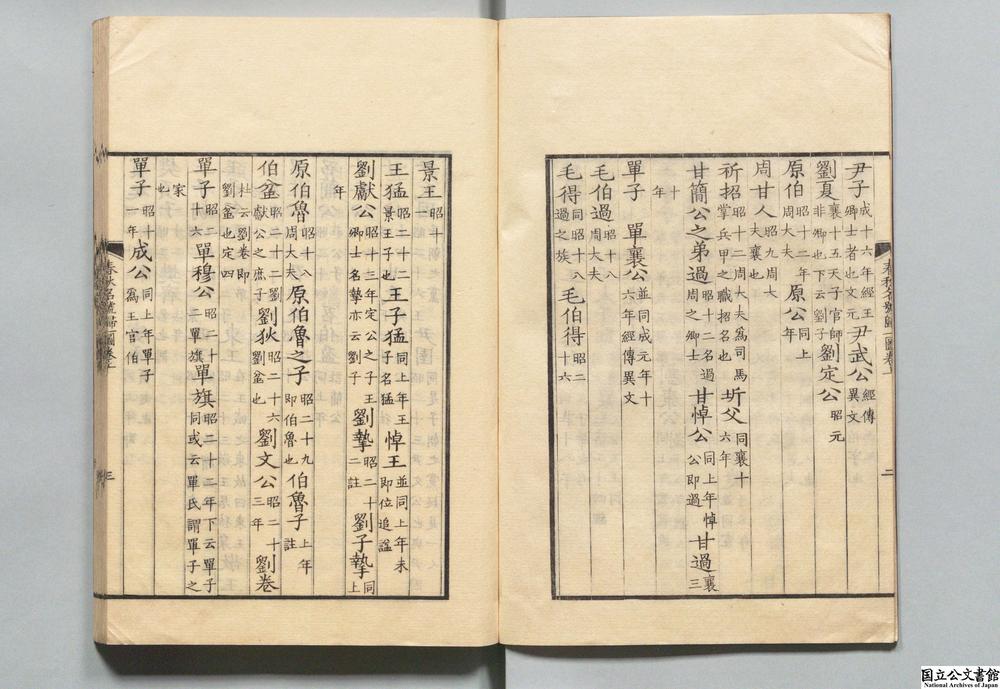 尹子成十六年經王卿士者也文元尹武公經傳異文
劉夏襄十五天子官師非卿也下云劉子劉定公昭元
原伯昭十二年周大夫原公同上年
周甘人昭九周大夫襄也
祈招昭十二周大夫為司馬掌兵甲之職招名也圻父同襄十六年
甘簡公之弟過昭十二名過周之卿士甘悼公同上年悼公即過甘過襄三十年
單子　單襄公並同成元年十六年經傳異文
毛伯過昭十八周大夫
毛得同昭十八過之族毛伯得昭二十六
春秋名號歸一圖卷上
二
景王昭十二
王猛昭二十二年景王子也王子猛同上年王子名猛悼王並同上年未即位追諡
劉獻公昭十三年定公之子王卿士名摯亦云劉子劉摯昭二十二註劉子摯同上年
原伯魯昭十八周大夫原伯魯之子昭二十九即伯魯也伯魯子上年註
伯盆昭二十二劉獻公之庶子劉狄昭二十六劉盆也劉文公昭二十三年劉卷杜云劉卷即劉盆也定四
單子昭二十六單穆公昭二十二單旗單旗昭二十二年下云單子同或云單氏謂單子之家也
單子昭十一年成公同上年單子為王官伯
春秋名號歸一圖卷上
三
国立公文書館
National Archives of Japan